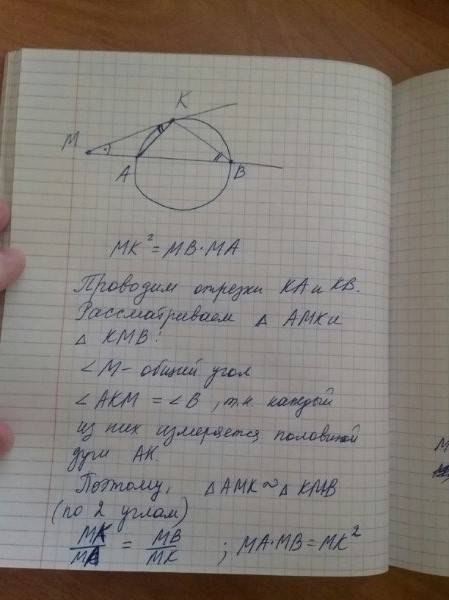 K
M
A
B
MK² = MB·MA
Проводим отрезки KA и KB.
Рассматриваем △ AMK и
△ KMB:
∠M – общий угол
∠AKM = ∠B, т.к. каждый
из них измеряется половиной
дуги AK.
Поэтому, △AMK ~ △KMB
(по 2 углам)
MK/MA = MB/MK ; MA·MB = MK²
M